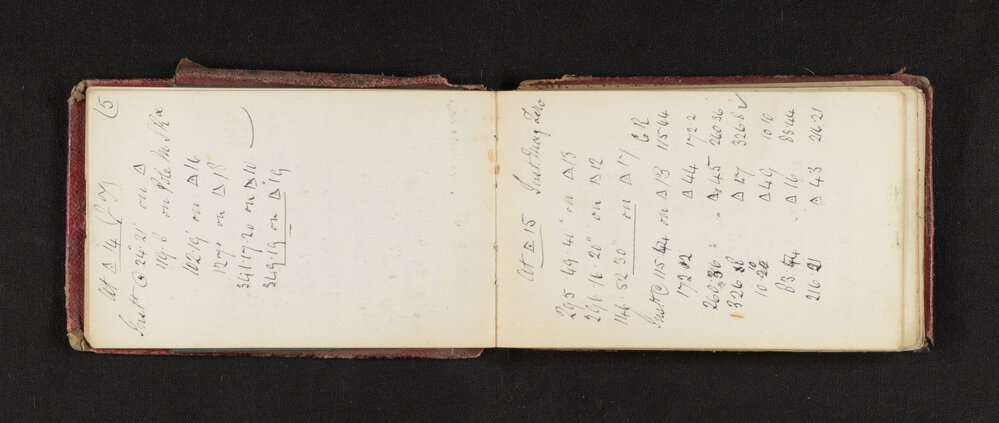 (5
At △ 14
Inst @ 24·21' on △
119·8 on Pole
102·19' on △ 16
127° on △ 18
341·17·20 on △ 10
349·19 on △ 19
At △ 15 Inst Mag Zero
295 49 40" on △ 13
296·16·20" on △ 12
146·52·30" on △ 17
Inst @ 115 44 on △ 13 115 44
172 △ 44 172·2
260·36 △ 45 260·36
326·8 △ 17 326·8 ✓
10· △ 49 10·0
83·44 △ 16 83·44
216·21 △ 43 216·21